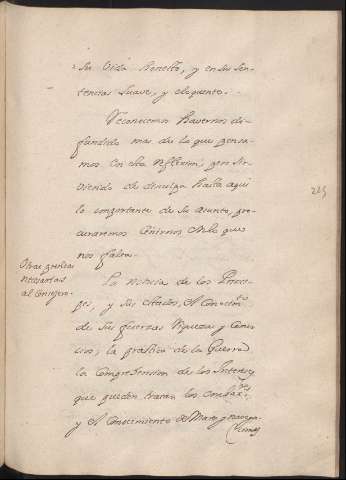 su vida honesto, y en sus sen-
tencias suave, y eloquente.
Reconocemos havernos di-
fundido mas de lo que pensa-
mos con esta reflexion, pero sir-
viendo de disculpa hasta aqui
lo importante de su asunto, pro-
curaremos ceñirnos en lo que
nos falta.
Otras prendas
necesarias
al Consejero.
La noticia de los Princi-
pes, y sus estados, el Conocim.to
de sus fuerzas riquezas y Comer-
cios, la practica de la Guerra
la Comprehension de los Intereses
que pueden traher los
y el Conocimiento de Mares y
225